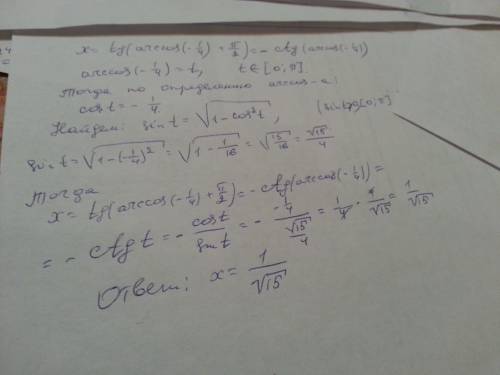 x = tg(arccos(-1/4) + π/2) = - ctg(arccos(-1/4))
arccos(-1/4) = t, t ∈ [0; π]
Тогда по определению arccos-а:
cos t = - 1/4
Найдем: sin t = √(1 - cos²t),
sin t = √(1 - (-1/4)²) = √(1 - 1/16) = √(15/16) = √15/4
Тогда
x = tg(arccos(-1/4) + π/2) = - ctg(arccos(-1/4)) =
= - ctg t = - cos t/sin t = - (-1/4)/(√15/4) = 1/4 · 4/√15 = 1/√15
Ответ: x = 1/√15